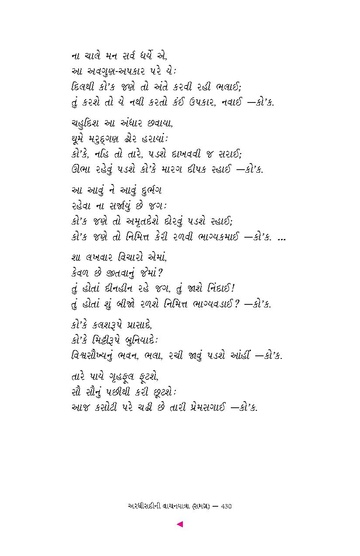 ના ચાલે મન સર્વ ધર્યે એ,
આ અવગુણ-અપકાર પરે યેઃ
દિલથી કો'ક જણે તો અંતે કરવી રહી ભલાઈ;
તું કરશે તો યે નથી કરતો કંઈ ઉપકાર, નવાઈ —કો'ક.
ચહુદિશ આ અંધાર છવાયા,
ઘૂમે મરુદ્ગણ ઢોર હરાયાંઃ
કો'કે, નહિ તો તારે, પડશે દાખવવી જ સરાઈ;
ઊભા રહેવું પડશે કો'કે મારગ દીપક સ્હાઈ —કો'ક.
આ આવું ને આવું દુર્ભગ
રહેવા ના સર્જાયું છે જગઃ
કો'ક જણે તો અમૃતદેશે દોરવું પડશે સ્હાઈ;
કો'ક જણે તો નિમિત્ત કેરી રળવી ભાગ્યકમાઈ —કો'ક. ...
શા લખવાર વિચારો એમાં,
કેવળ છે જીતવાનું જેમાં?
તું હોતાં દીનહીન રહે જગ, તું જાશે નિંદાઈ!
તું હોતાં શું બીજો રળશે નિમિત્ત ભાગ્યવડાઈ? —કો'ક.
કો'કે કલશરૂપે પ્રાસાદે,
કો'કે મિટ્ટીરૂપે બુનિયાદેઃ
વિશ્વસૌખ્યનું ભવન, ભલા, રચી જાવું પડશે આંહીં —કો'ક.
તારે પાયે ગૃહફૂલ ફૂટશે,
સૌ સૌનું પછીથી કરી છૂટશેઃ
આજ કસોટી પરે ચઢી છે તારી પ્રેમસગાઈ —કો'ક.
અરધીસદીની વાચનયાત્રા (સમગ્ર) — 430